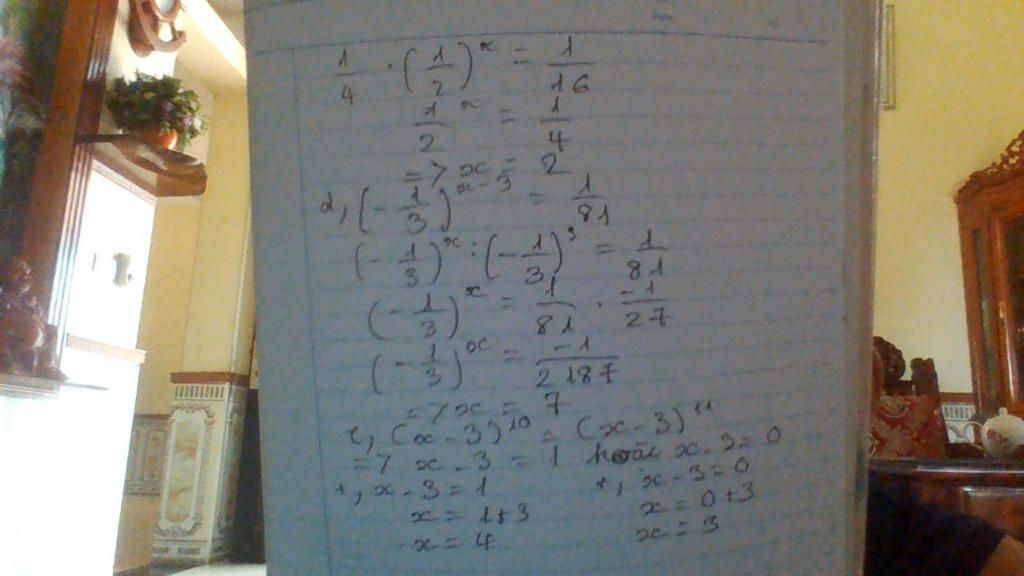 1/4 · (1/2)^x = 1/16
1/2^x = 1/4
=> x = 2
d, (-1/3)^x-3 = 1/81
(-1/3)^x : (-1/3)^3 = 1/81
(-1/3)^x = 1/81 · -1/27
(-1/3)^x = -1/2187
=> x = 7
e, (x-3)^10 = (x-3)^11
=> x-3 = 1 hoặc x-3 = 0
+, x-3 = 1 +, x-3 = 0
x = 1+3 x = 0+3
x = 4 x = 3